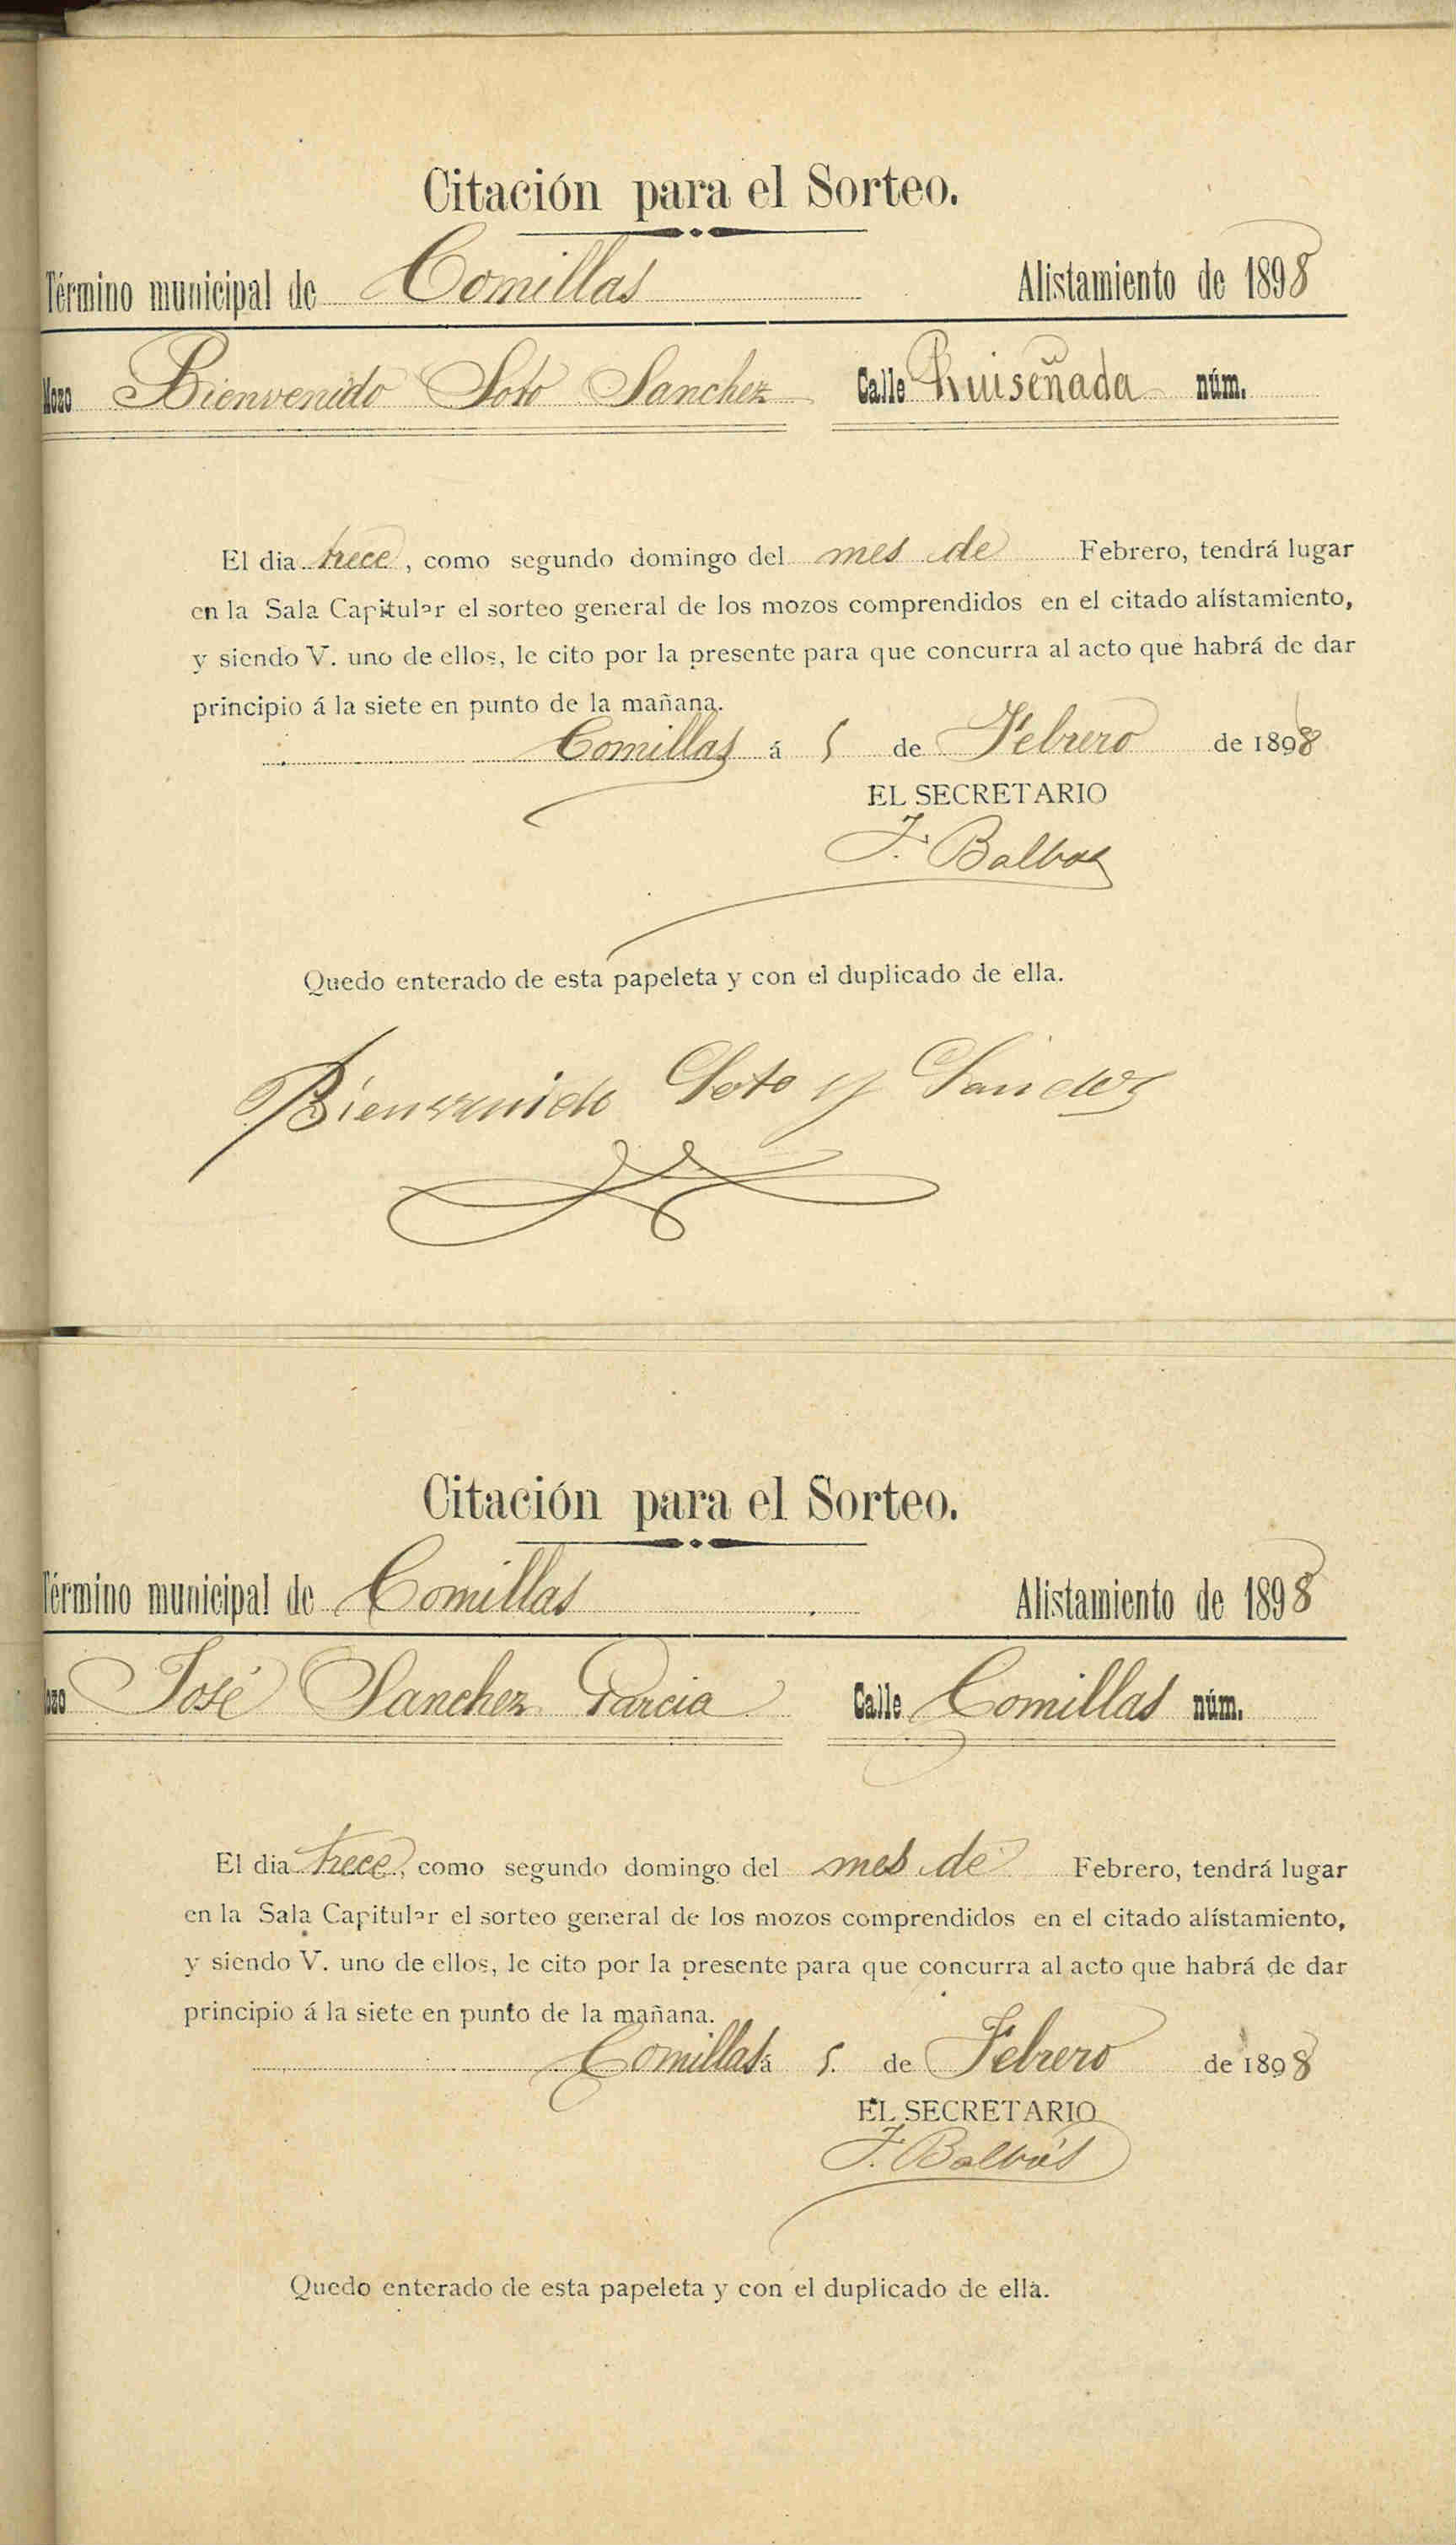 Citación para el Sorteo.
Término municipal de Comillas Alistamiento de 1898
Mozo Bienvenido Soto Sanchez Calle Ruiseñada núm.
El dia trece, como segundo domingo del mes de Febrero, tendrá lugar
en la Sala Capitular el sorteo general de los mozos comprendidos en el citado alistamiento,
y siendo V. uno de ellos, le cito por la presente para que concurra al acto que habrá de dar
principio á la siete en punto de la mañana.
Comillas á 5 de Febrero de 1898
EL SECRETARIO
F. Balbas
Quedo enterado de esta papeleta y con el duplicado de ella.
Bienvenido Soto y
Citación para el Sorteo.
Término municipal de Comillas Alistamiento de 1898
Mozo José Sanchez Garcia Calle Comillas núm.
El dia trece, como segundo domingo del mes de Febrero, tendrá lugar
en la Sala Capitular el sorteo general de los mozos comprendidos en el citado alistamiento,
y siendo V. uno de ellos, le cito por la presente para que concurra al acto que habrá de dar
principio á la siete en punto de la mañana.
Comillas á 5. de Febrero de 1898
EL SECRETARIO
F. Balbás
Quedo enterado de esta papeleta y con el duplicado de ella.